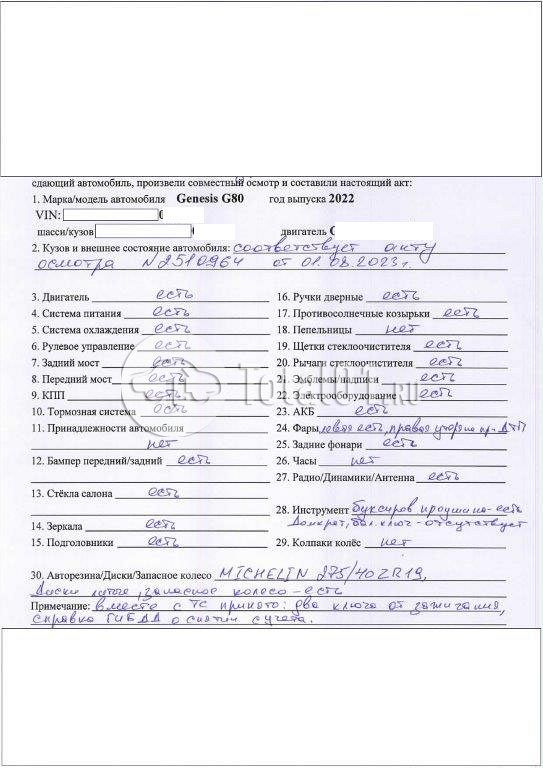 сдающий автомобиль, произвели совместный осмотр и составили настоящий акт:
1. Марка/модель автомобиля Genesis G80 год выпуска 2022
VIN:
шасси/кузов двигатель
2. Кузов и внешнее состояние автомобиля: соответствует акту
осмотра N2510964 от 01.08.2023г.
3. Двигатель есть 16. Ручки дверные есть
4. Система питания есть 17. Противосолнечные козырьки есть
5. Система охлаждения есть 18. Пепельницы нет
6. Рулевое управление есть 19. Щетки стеклоочистителя есть
7. Задний мост есть 20. Рычаги стеклоочистителя есть
8. Передний мост есть 21. Эмблемы/надписи есть
9. КПП есть 22. Электрооборудование есть
10. Тормозная система есть 23. АКБ есть
11. Принадлежности автомобиля 24. Фары левая есть, правая утеряна пр. ДТП
нет 25. Задние фонари есть
12. Бампер передний/задний есть 26. Часы нет
27. Радио/Динамики/Антенна есть
13. Стёкла салона есть
28. Инструмент буксиров проушина-есть
14. Зеркала есть Домкрат, бал.ключ-отсутствует
15. Подголовники есть 29. Колпаки колёс нет
30. Авторезина/Диски/Запасное колесо MICHELIN 275/40ZR19,
Диски литые, запасное колесо-есть
Примечание: вместе с ТС принято: два ключа от зажигания,
справка ГИБДД о снятии с учета.
Total01.RU